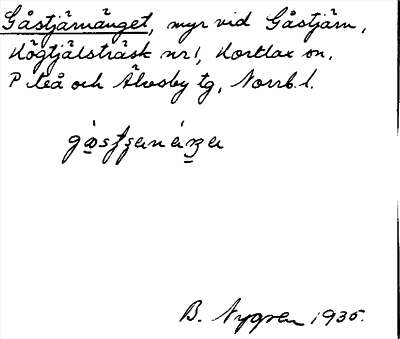 Gåstjärnänget, myr vid Gåstjärn,
Högtjälsträsk nr 1, Hortlax sn.
Piteå och Älvsby tg, Norrb. l.
B. Nygren 1935.